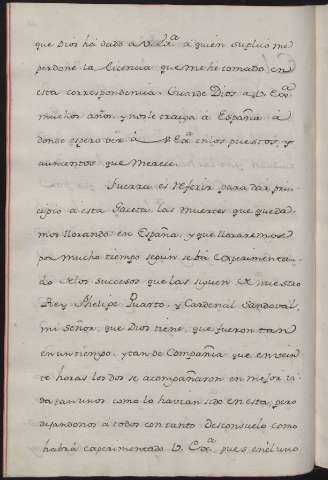 que Dios ha dado a V. Exª a quien suplico me
perdone la licencia que me he tomado en
esta correspondencia. Guarde Dios a V. Exª
muchos años, y nos le traiga a España a
donde espero ver à V Exª en los puestos y
aumentos que merece.
Fuerza es referir para dar prin
cipio a esta Gaceta las muertes que queda
mos llorando en España, y que lloraremos
por mucho tiempo segun se bà experimentan
do de los successos que las siguen de nuestro
Rey Phelipe Quarto, y Cardenal Sandoval,
mi señor, que Dios tiene, que fueron tan
en un tiempo, y tan de Compañia que en vein
te horas los dos se acompañaron en mejor vi
da tan unos como lo havian sido en esta, pero
dejandonos a todos con tanto desconsuelo como
habrá experimentado V. Exª, pues en el uno